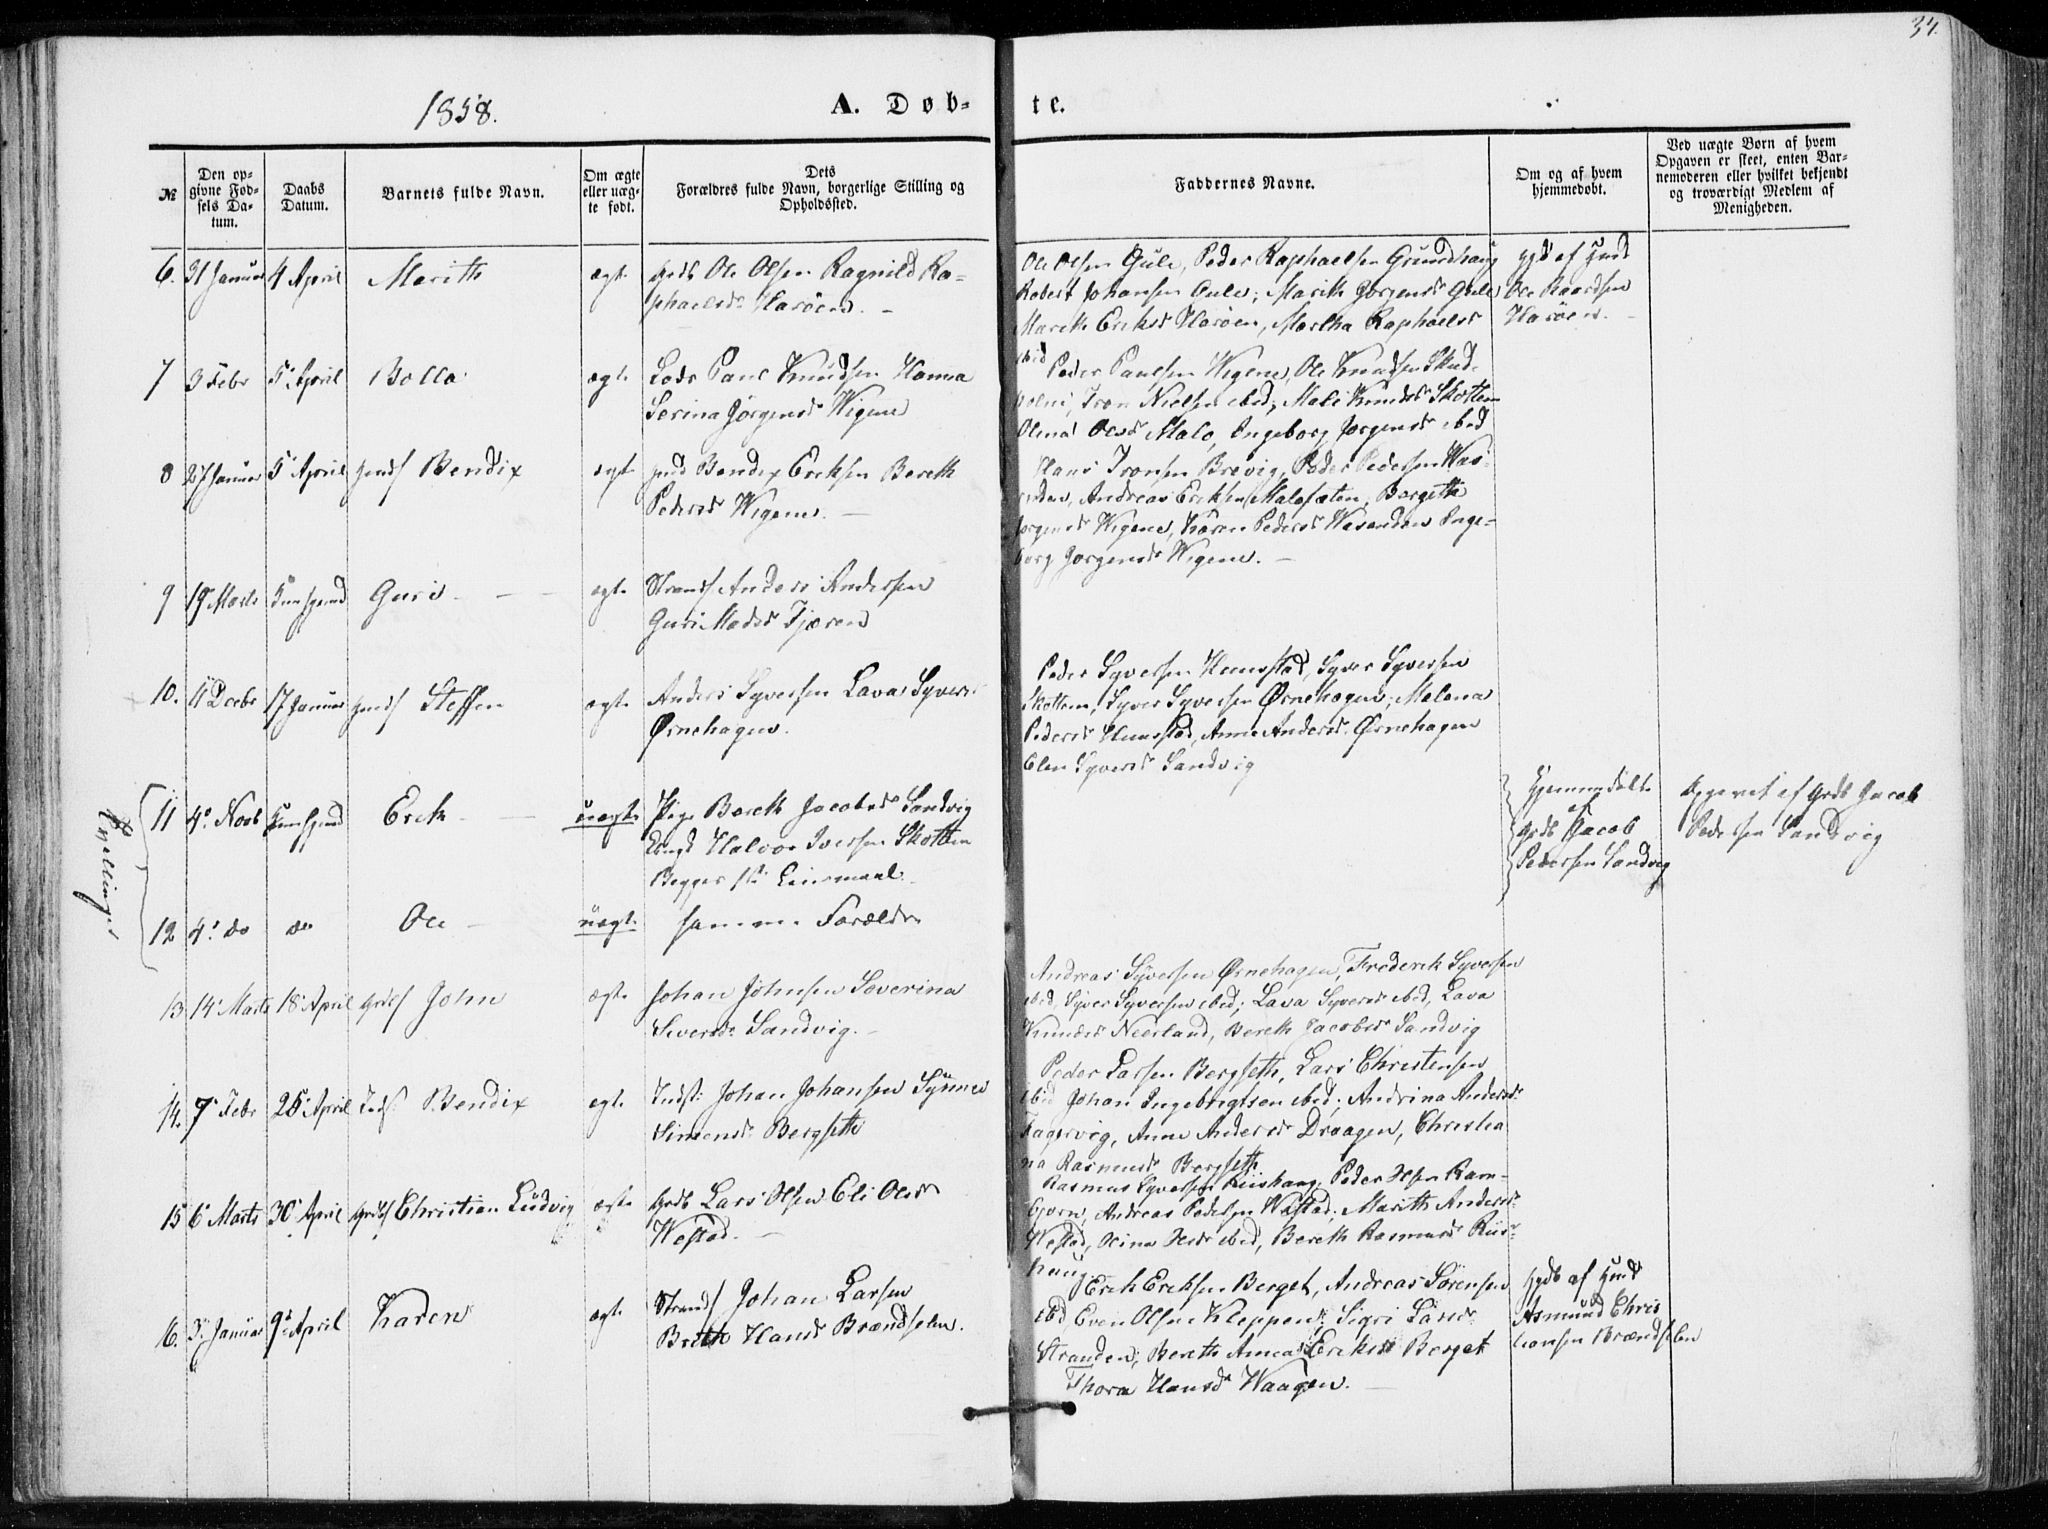 34.
1858.
A. Døb-
te.
№
Den op-
givne Fød-
sels Da-
tum.
Daabs
Datum.
Barnets fulde Navn.
Om ægte
eller uæg-
te født.
Dets
Forældres fulde Navn, borgerlige Stilling og
Opholdssted.
Faddernes Navne.
Om og af hvem
hjemmedøbt.
Ved uægte Børn af hvem
Opgaven er skeet, enten Bar-
nemoderen eller hvilket bekjendt
og troværdigt Medlem af
Menigheden.
6. 31 Januar 4 April Marith ægte Grdb Ole Olsen Ragnild Ra-
phaelsd. Harøen. -
Ole Olsen Gule, Peder Raphaelsen Grundhaug
Robert Johansen Gule; Marith Jørgensd Gule
Marith Eriksd Harøen, Martha Raphaelsd
ibid
Hgd af Hmd
Ole Baardsen
Harøen. -
7 3 Febr 5 April Bolla ægte Lods Paul Knudsen Hanna
Serina Jørgensd. Wigene
Peder Paulsen Wigene, Ole Knudsen Skud-
Iver Nielsen ibid; Mali Knudsd Skotten
Olina Olsd Malo, Ingeborg Jørgensd ibid
8 27 Januar 5 April Bendix ægte Hmd Bendix Eriksen Bereth
Pedersd Wigene. -
Hans Iversen Brevig, Peder Pedersen Was-
enden, Andreas Eriksen Malesæten, Bergithe
Jørgensd Wigene, Karen Pedersd Wasenden Inge-
borg Jørgensd Wigene. -
9 19 Marts Guri - ægte Strands Anders Andersen
Guri Madsd Tjæren
10. 11 Decbr 17 Januar Steffen ægte Anders Syversen Lava Syversd
Ørnehagen.
Peder Syversen Humstad, Syver Syversen
Skotten, Syver Syversen Ørnehagen, Malena
Pedersd Humstad, Anne Andersd. Ørnehagen
Elen Syversd Sandvig
Tvillinger
11 4 Novb Erik - uægte Pige Bereth Jacobsd Sandvig
Ungk Halvor Iversen Skotten
Begges 1ste Leiermaal.
Hjemmedøbt
af
Grdb Jacob
Pedersen Sandvig
Opgivet af Grdb Jacob
Pedersen Sandvig
12 4 do do Ole - uægte samme Forældre
13 14 Marts 18 April Grdbs John ægte Johan Johnsen Severina
Siversd. Sandvig. -
Andreas Syversen Ørnehagen, Frederik Syversen
ibid, Syver Syversen ibid; Lava Syversd ibid, Lava
Knudsd Neerland, Bereth Jacobsd Sandvig
14. 7 Febr 25 April Inds: Bendix ægte Indst: Johan Johansen Synneve
Simensd. Bergseth
Peder Larsen Bergseth, Lars Christensen
ibid Johan Ingebrigtsen ibid; Andrina Andersd:
Fagervig, Anne Andersd Draagen, Christia
na Rasmusd Bergseth
15 6 Marts 30 April Grdbs Christian Ludvig ægte Grdb Lars Olsen Eli Olsd
Westad. -
Rasmus Syversen Riishaug, Peder Olsen Ram-
bjørn, Andreas Pedersen Westad; Marith Andersd:
Westad, Olina Olsd ibid, Bereth Rasmusd Riis-
haug
16. 3 Januar 9 April Karen ægte Strands Johan Larsen
Breth Hansd Brændselen.
Erik Eriksen Berget, Andreas Sørensen
ibid Even Olsen Kleppen; Sigri Larsd
Stranden; Bereth Annea Eriksd Berget
Thora Hansd Waagen. -
Hgdb af Hmd
Asmund Chris
tensen Brændselen